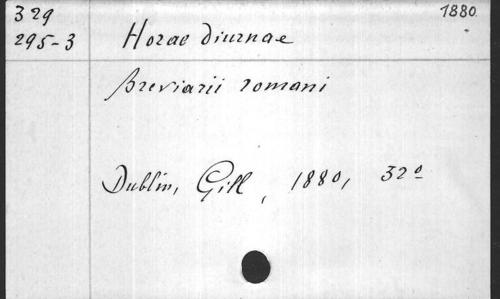 329
1880.
295-3 Horae diurnae
Breviarii romani
Dublin, Gill, 1880, 32º